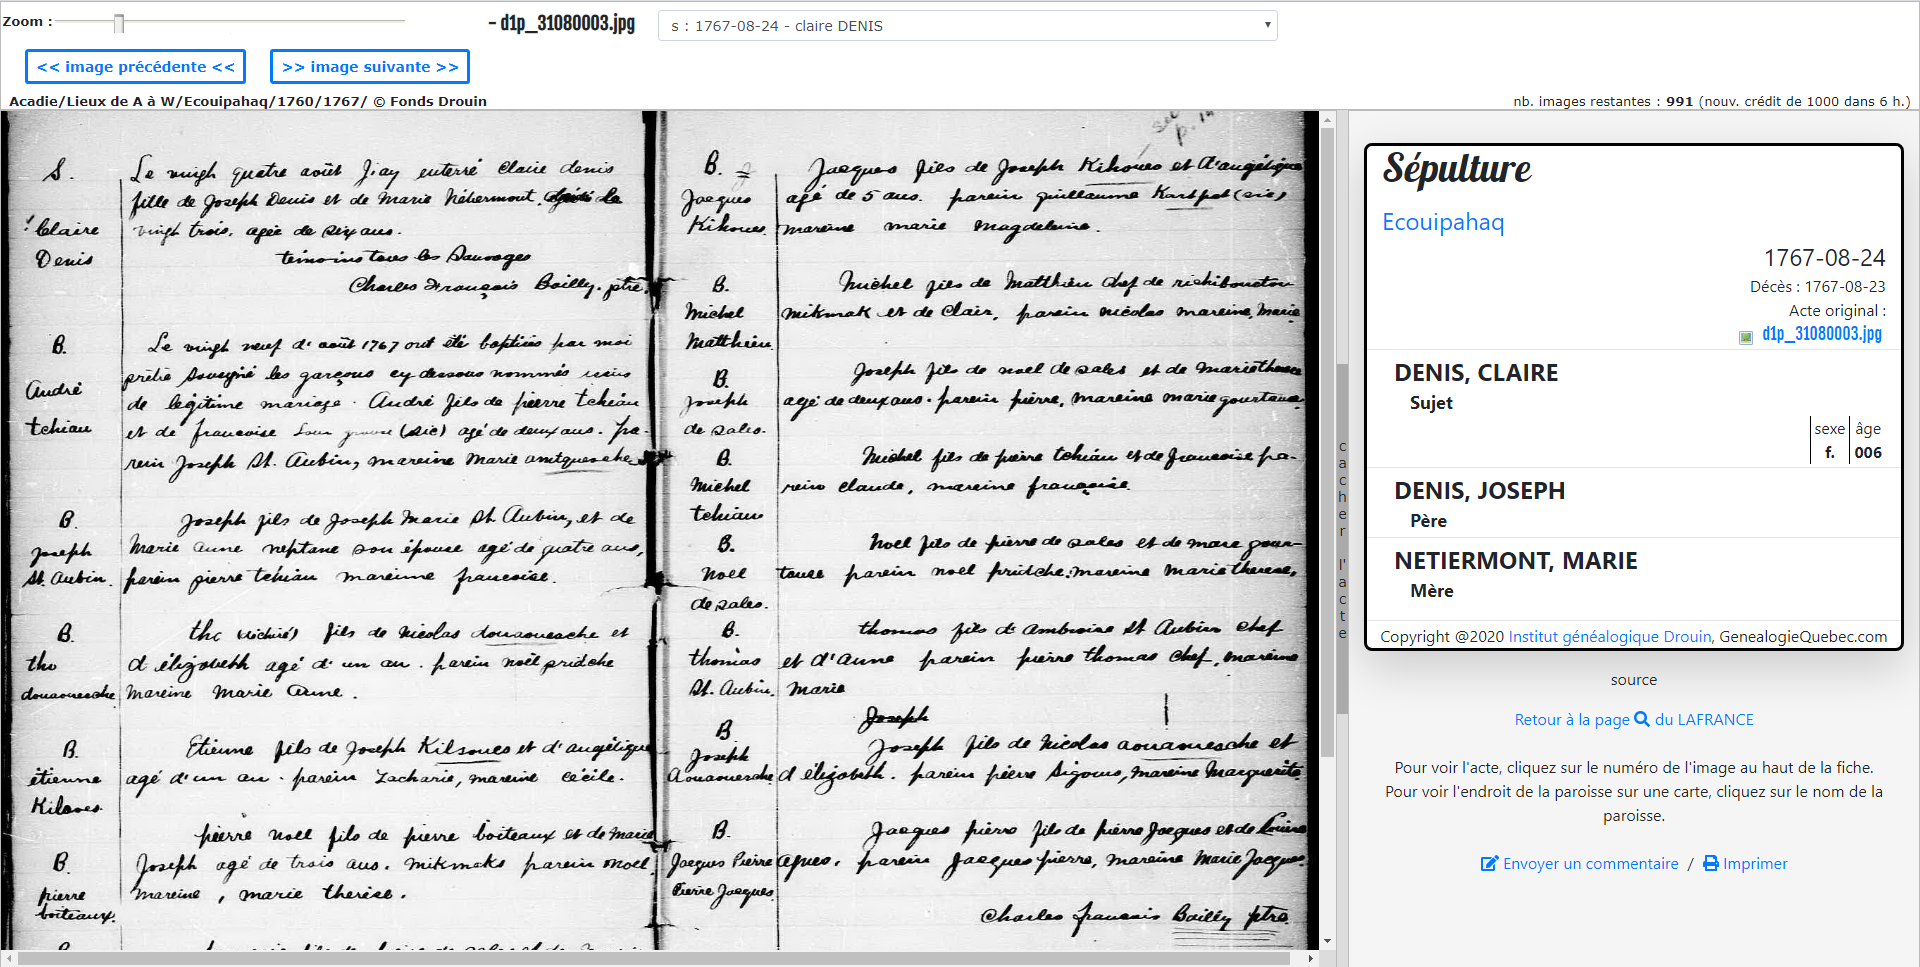 Zoom :
- d1p_31080003.jpg
s : 1767-08-24 - claire DENIS
<< image précédente <<
>> image suivante >>
Acadie/Lieux de A à W/Ecouipahaq/1760/1767/ © Fonds Drouin
nb. images restantes : 991 (nouv. crédit de 1000 dans 6 h.)
S.
Claire
Denis
Le vingh quatre août J'ay enterré Claire denis
fille de Joseph Denis et de Marie Netiermont
vingh trois. agée de six ans.
temoins tous les Sauvages
Charles François Bailly. ptre.
B.
André
tchiau
Le vingh neuf d'août 1767 ont été baptisés par moi
prêtre Sousigné les garçons cy dessous nommés
de légitime mariage. André fils de pierre tchiau
et de francoise (sic) agé de deux ans. pa-
rein Joseph St. Aubin, mareine Marie
B.
Joseph
St. Aubin.
Joseph fils de Joseph Marie St. Aubin, et de
Marie anne neptane son épouse agé de quatre ans,
parein pierre tchiau mareinne francoise.
B.
tho
douaouesche
tho (déchiré) fils de Nicolas douaouesche et
d'élizabeth agé d'un an. parein noël pridche
Mareine Marie Anne.
B.
étienne
Kilaoues
Etienne fils de Joseph Kilsoues et d'angélique
agé d'un an. parein Zacharie, mareine cécile.
B.
pierre
boiteaux.
pierre noel fils de pierre boiteaux et de Marie
Joseph agé de trois ans. mikmaks parein noel
mareine, marie therese.
B.
B.
Jacques
Kihoues
Jacques fils de Joseph Kihoues et d'angélique
agé de 5 ans. parein guillaume (sic)
mareine marie magdeleine.
B.
Michel
Matthieu
Michel fils de Matthieu chef de richibouctou
mikmak et de Clair, parein nicolas mareine, Marie
B.
Joseph
de sales.
Joseph fils de noel de sales et de marie therese
agé de deux ans. parein pierre, mareine marie
B.
Michel
tchiau
Michel fils de pierre tchiau et de francoise pa-
rein claude, mareine françoise.
B.
Noel
de sales.
Noel fils de pierre de sales et de marie
parein noel pridche, mareine marie therese,
B.
thomas
St. Aubin.
thomas fils d'Ambroise St Aubin chef
et d'Anne parein pierre thomas chef, mareine
Marie
Joseph
B.
Joseph
Aouaouesche
Joseph fils de Nicolas aouaouesche et
d'élizabeth. parein pierre, mareine Marguerite
B.
Jacques Pierre
Pierre Jacques.
Jacques pierre fils de pierre Jacques et de
agnes. parein Jacques pierre, mareine Marie Jacques
Charles francois Bailly ptre
cacher l'acte
Sépulture
Ecouipahaq
1767-08-24
Décès : 1767-08-23
Acte original :
d1p_31080003.jpg
DENIS, CLAIRE
Sujet
sexe âge
f. 006
DENIS, JOSEPH
Père
NETIERMONT, MARIE
Mère
Copyright @2020 Institut généalogique Drouin, GenealogieQuebec.com
source
Retour à la page du LAFRANCE
Pour voir l'acte, cliquez sur le numéro de l'image au haut de la fiche.
Pour voir l'endroit de la paroisse sur une carte, cliquez sur le nom de la
paroisse.
Envoyer un commentaire / Imprimer